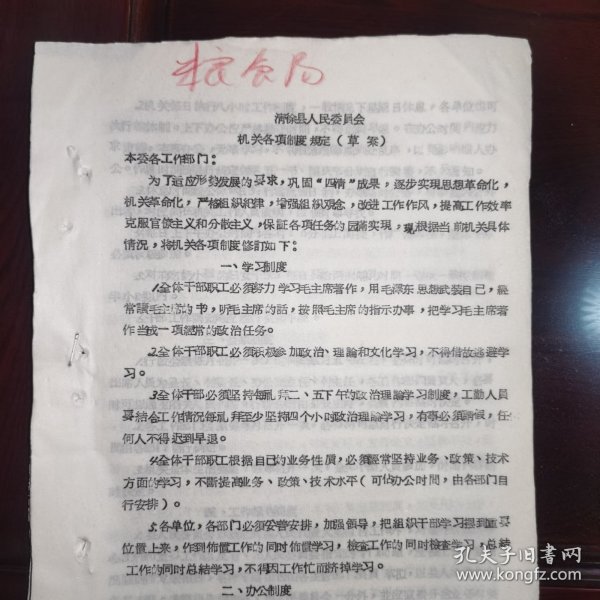 粮食局
清徐县人民委员会
机关各项制度规定（草案）
本委各工作部门：
为了适应形势发展的要求，巩固“四清”成果，逐步实现思想革命化，
机关革命化，严格组织纪律，增强组织观念，改进工作作风，提高工作效率
克服官僚主义和分散主义，保证各项任务的园满实现，现根据当前机关具体
情况，将机关各项制度修订如下：
一、学习制度
1.全体干部职工必须努力学习毛主席著作，用毛泽东思想武装自己，经
常讀毛主席的书，听毛主席的話，按照毛主席的指示办事，把学习毛主席著
作当成一项經常的政治任务。
2.全体干部职工必须积极参加政治、理論和文化学习，不得借故逃避学
习。
3.全体干部必须坚持每礼拜二、五下午的政治理論学习制度，工勤人员
要结合工作情况每礼拜至少坚持四个小时政治理論学习，有事必须請假，任
何人不得迟到早退。
4.全体干部职工根据自己的业务性质，必须經常坚持业务、政策、技术
方面的学习，不断提高业务、政策、技术水平（可佔办公时间，由各部门自
行安排）。
5.各单位，各部门必须妥善安排，加强领导，把组织干部学习摆到重要
位置上来，作到佈置工作的同时佈置学习，檢查工作的同时檢查学习，总结
工作的同时总结学习，不得因工作忙而挤掉学习。
二、办公制度
孔夫子旧书网
www.kongfz.com